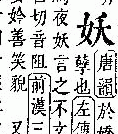 妖
唐韻於
孼也左傳
夜妖言之不
切音阻前漢三
妗善笑貌又